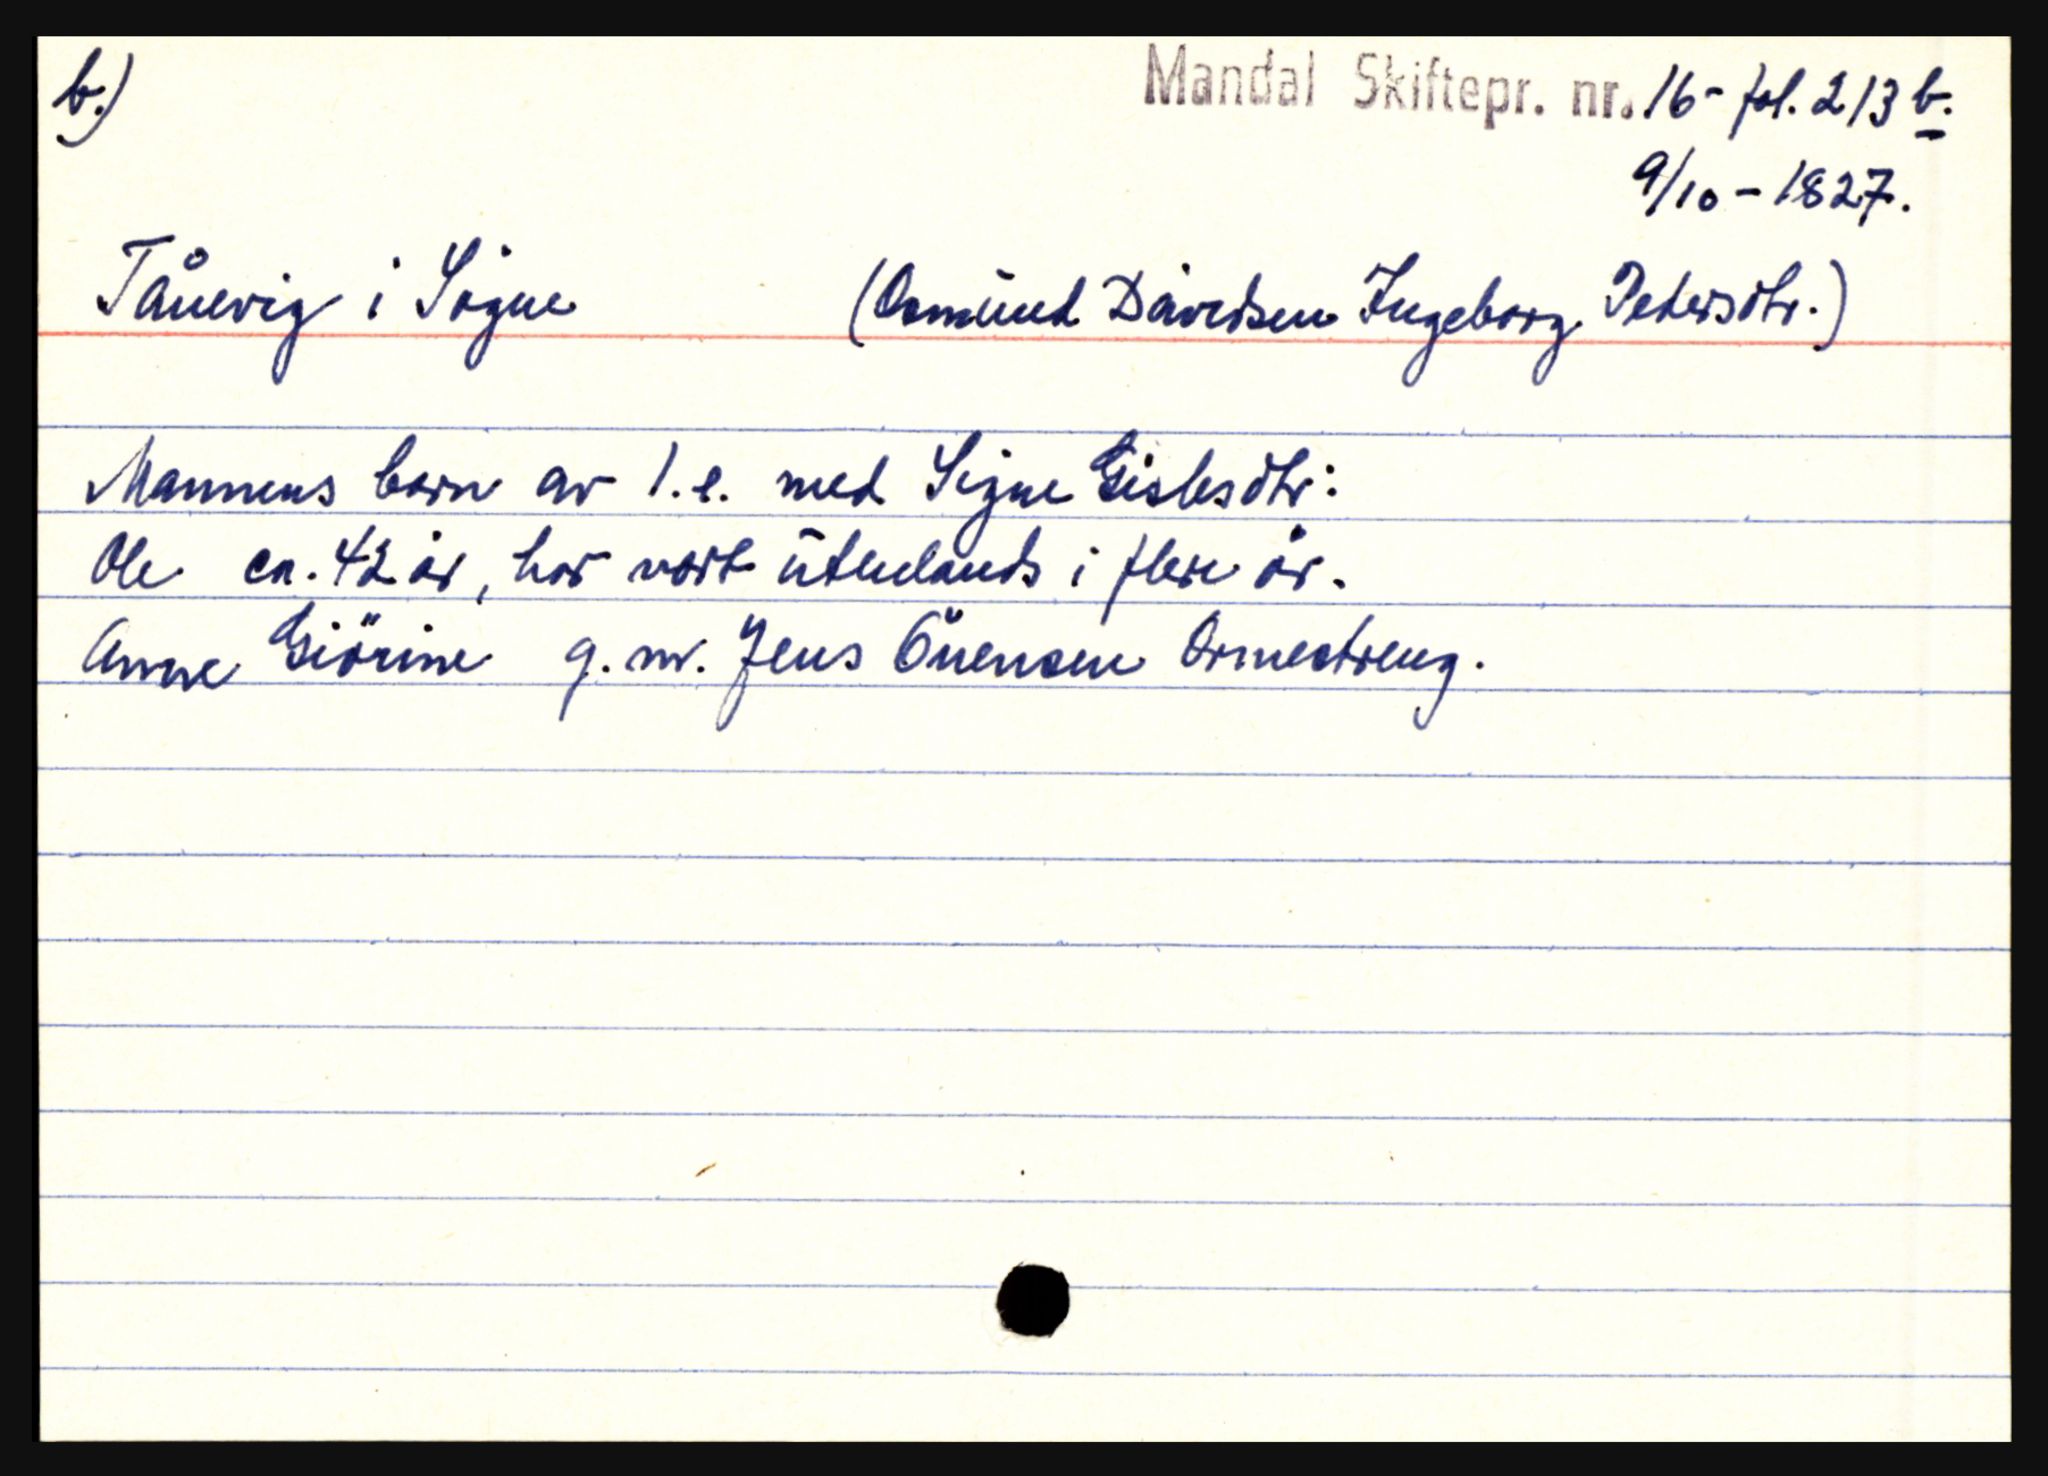 b.)
Mandal Skiftepr. nr. 16 - fol. 213 b.
9/10 - 1827.
Tånevig i Søgne (Osmund Davidsen Ingeborg Petersdtr.)
Mannens born av 1.e. med Signe Gislesdtr:
Ole ca. 42 år, har vært utenlands i flere år.
Anne Giörine g.m. Jens Önensen Ormestreng.